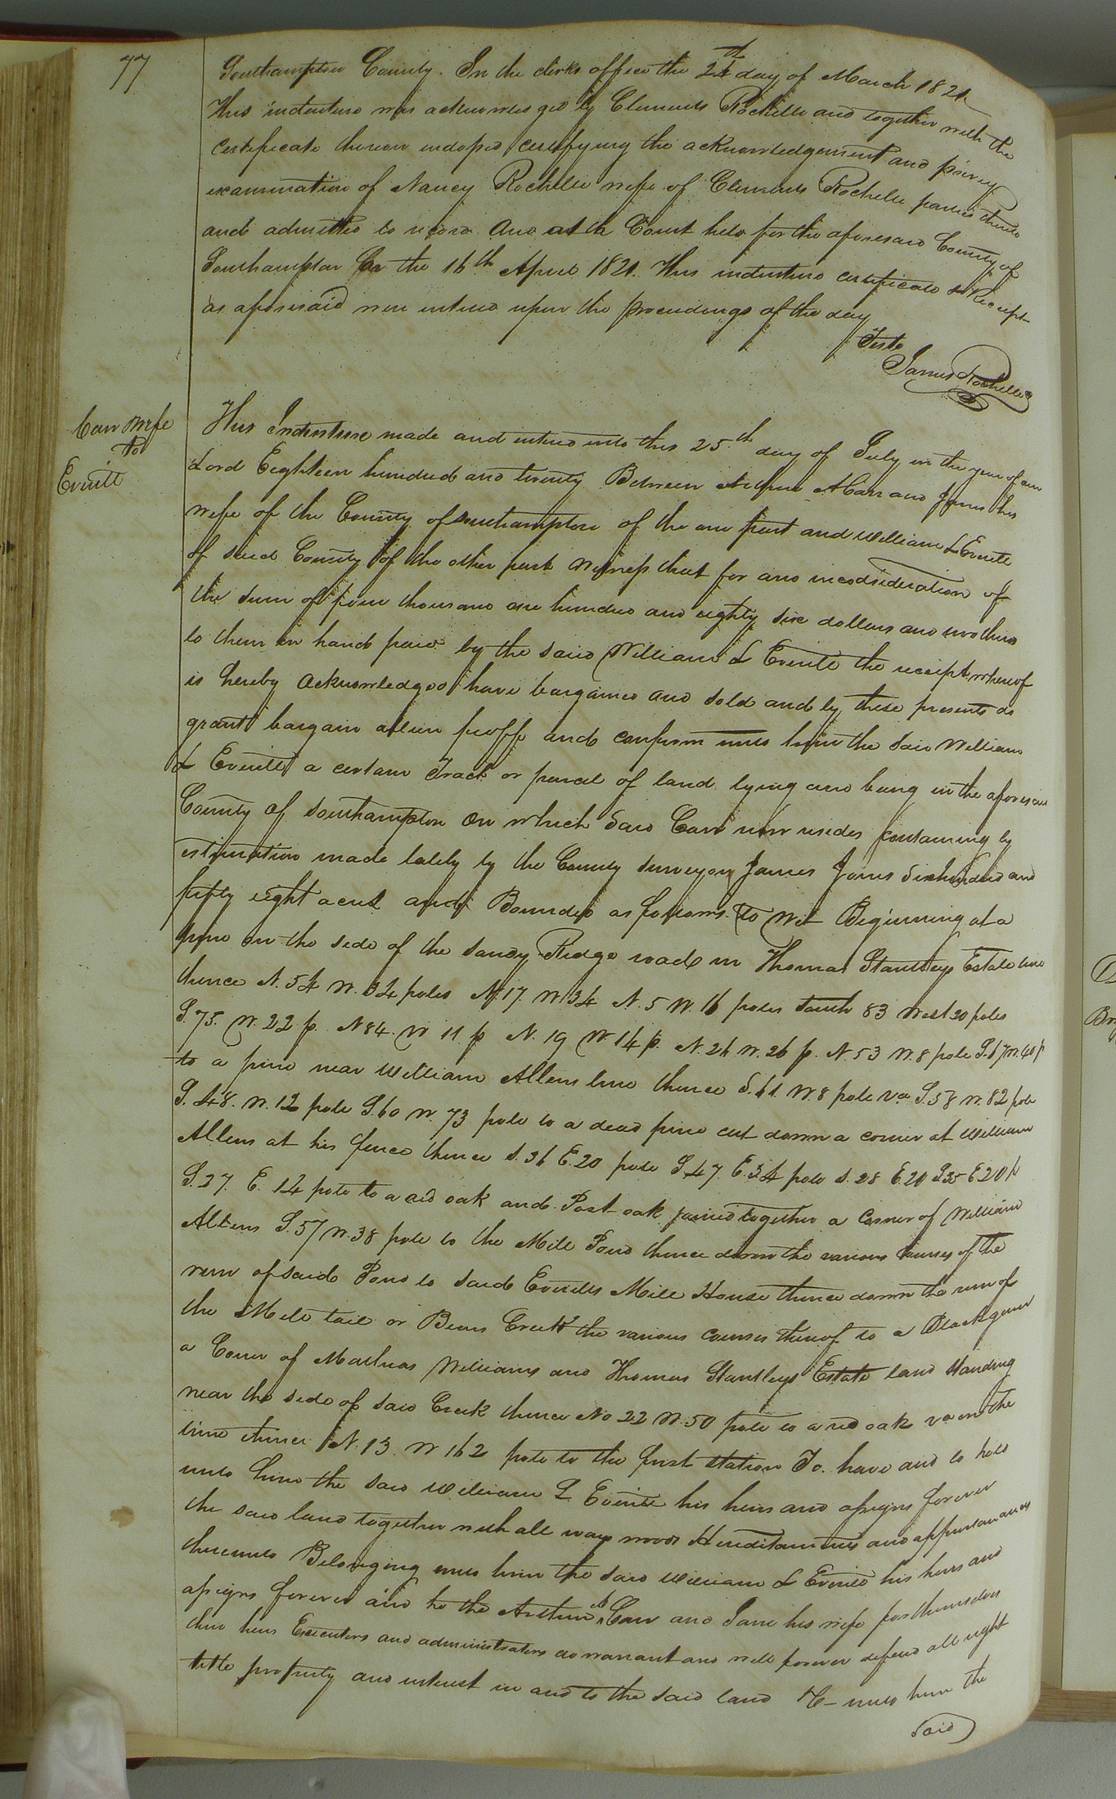 77
Southampton County. In the clerks office the 2d day of March 1821
This indenture was acknowledged by Clements Rochelle and together with the
certificate thereon indorsed certifying the acknowledgement and privey
examination of Nancy Rochelle wife of Clements Rochelle parties thereto
and admitted to record. And at a Court held for the aforesaid County of
Southampton the 16th April 1821. This indenture certificate & Receipt
as aforesaid were entered upon the proceedings of the day
Teste
James Rochelle
Carr & wife
to
Everitt
This Indenture made and entered into this 25th day of July in the year of our
Lord Eighteen hundred and twenty Between Arthur Carr and Jane his
wife of the County of Southampton of the one part and William L Everitt
of said County of the other part Witness that for and in consideration of
the sum of four thousand one hundred and eighty six dollars and two thirds
to them in hand paid by the said William L Everitt the receipt whereof
is hereby acknowledged have bargained and sold and by these presents do
grant bargain alien feoff and confirm unto him the said William
L Everitt a certain Tract or parcel of land lying and being in the aforesaid
County of Southampton on which said Carr now resides containing by
estimation made lately by the County surveyor James Jones six hundred and
fifty eight acres and Bounded as follows. To Wit Beginning at a
pine on the side of the sandy Ridge road in Thomas Stantleys Estate line
thence N. 54 W. 34 poles N. 17. W 34 N. 5 W. 16 poles South 83 West 20 poles
S. 75. W. 22 p. N 84. W 11 p N. 19 W 14 p. N. 26 W. 26 p. N 53 W. 8 pole S. 67 W. 40 p
to a pine near William Allens line thence S. 61 W. 8 pole S. 58 W. 82 pole
S. 48. W. 12 pole S. 60 W. 73 pole to a dead pine cut down a corner at William
Allens at his fence thence S. 36 E. 20 pole S. 47. E. 34 pole S. 28 E. 20 S 35 E 20 p
S. 27. E. 14 pole to a red oak and Post oak joined together a corner of William
Allens S. 57 W. 38 pole to the Mill Pond thence down the various courses of the
run of said Pond to said Everitts Mill House thence down the run of
the Mill tail or Creek the various courses thereof to a Black gum
a Corner of Mathias Williams and Thomas Stantleys Estate land standing
near the side of said Creek thence No 22 W. 50 pole to a red oak on the
line thence N. 13. W 162 pole to the first station To have and to hold
unto him the said William L Everitt his heirs and assigns forever
the said land together with all ways woods Hereditaments and appurtenances
thereunto Belonging unto him the said William L Everitt his heirs and
assigns forever and he the Arthur Carr and Jane his wife for themselves
their heirs Executors and administrators do warrant and will forever defend all right
title property and interest in and to the said land &c unto him the
said